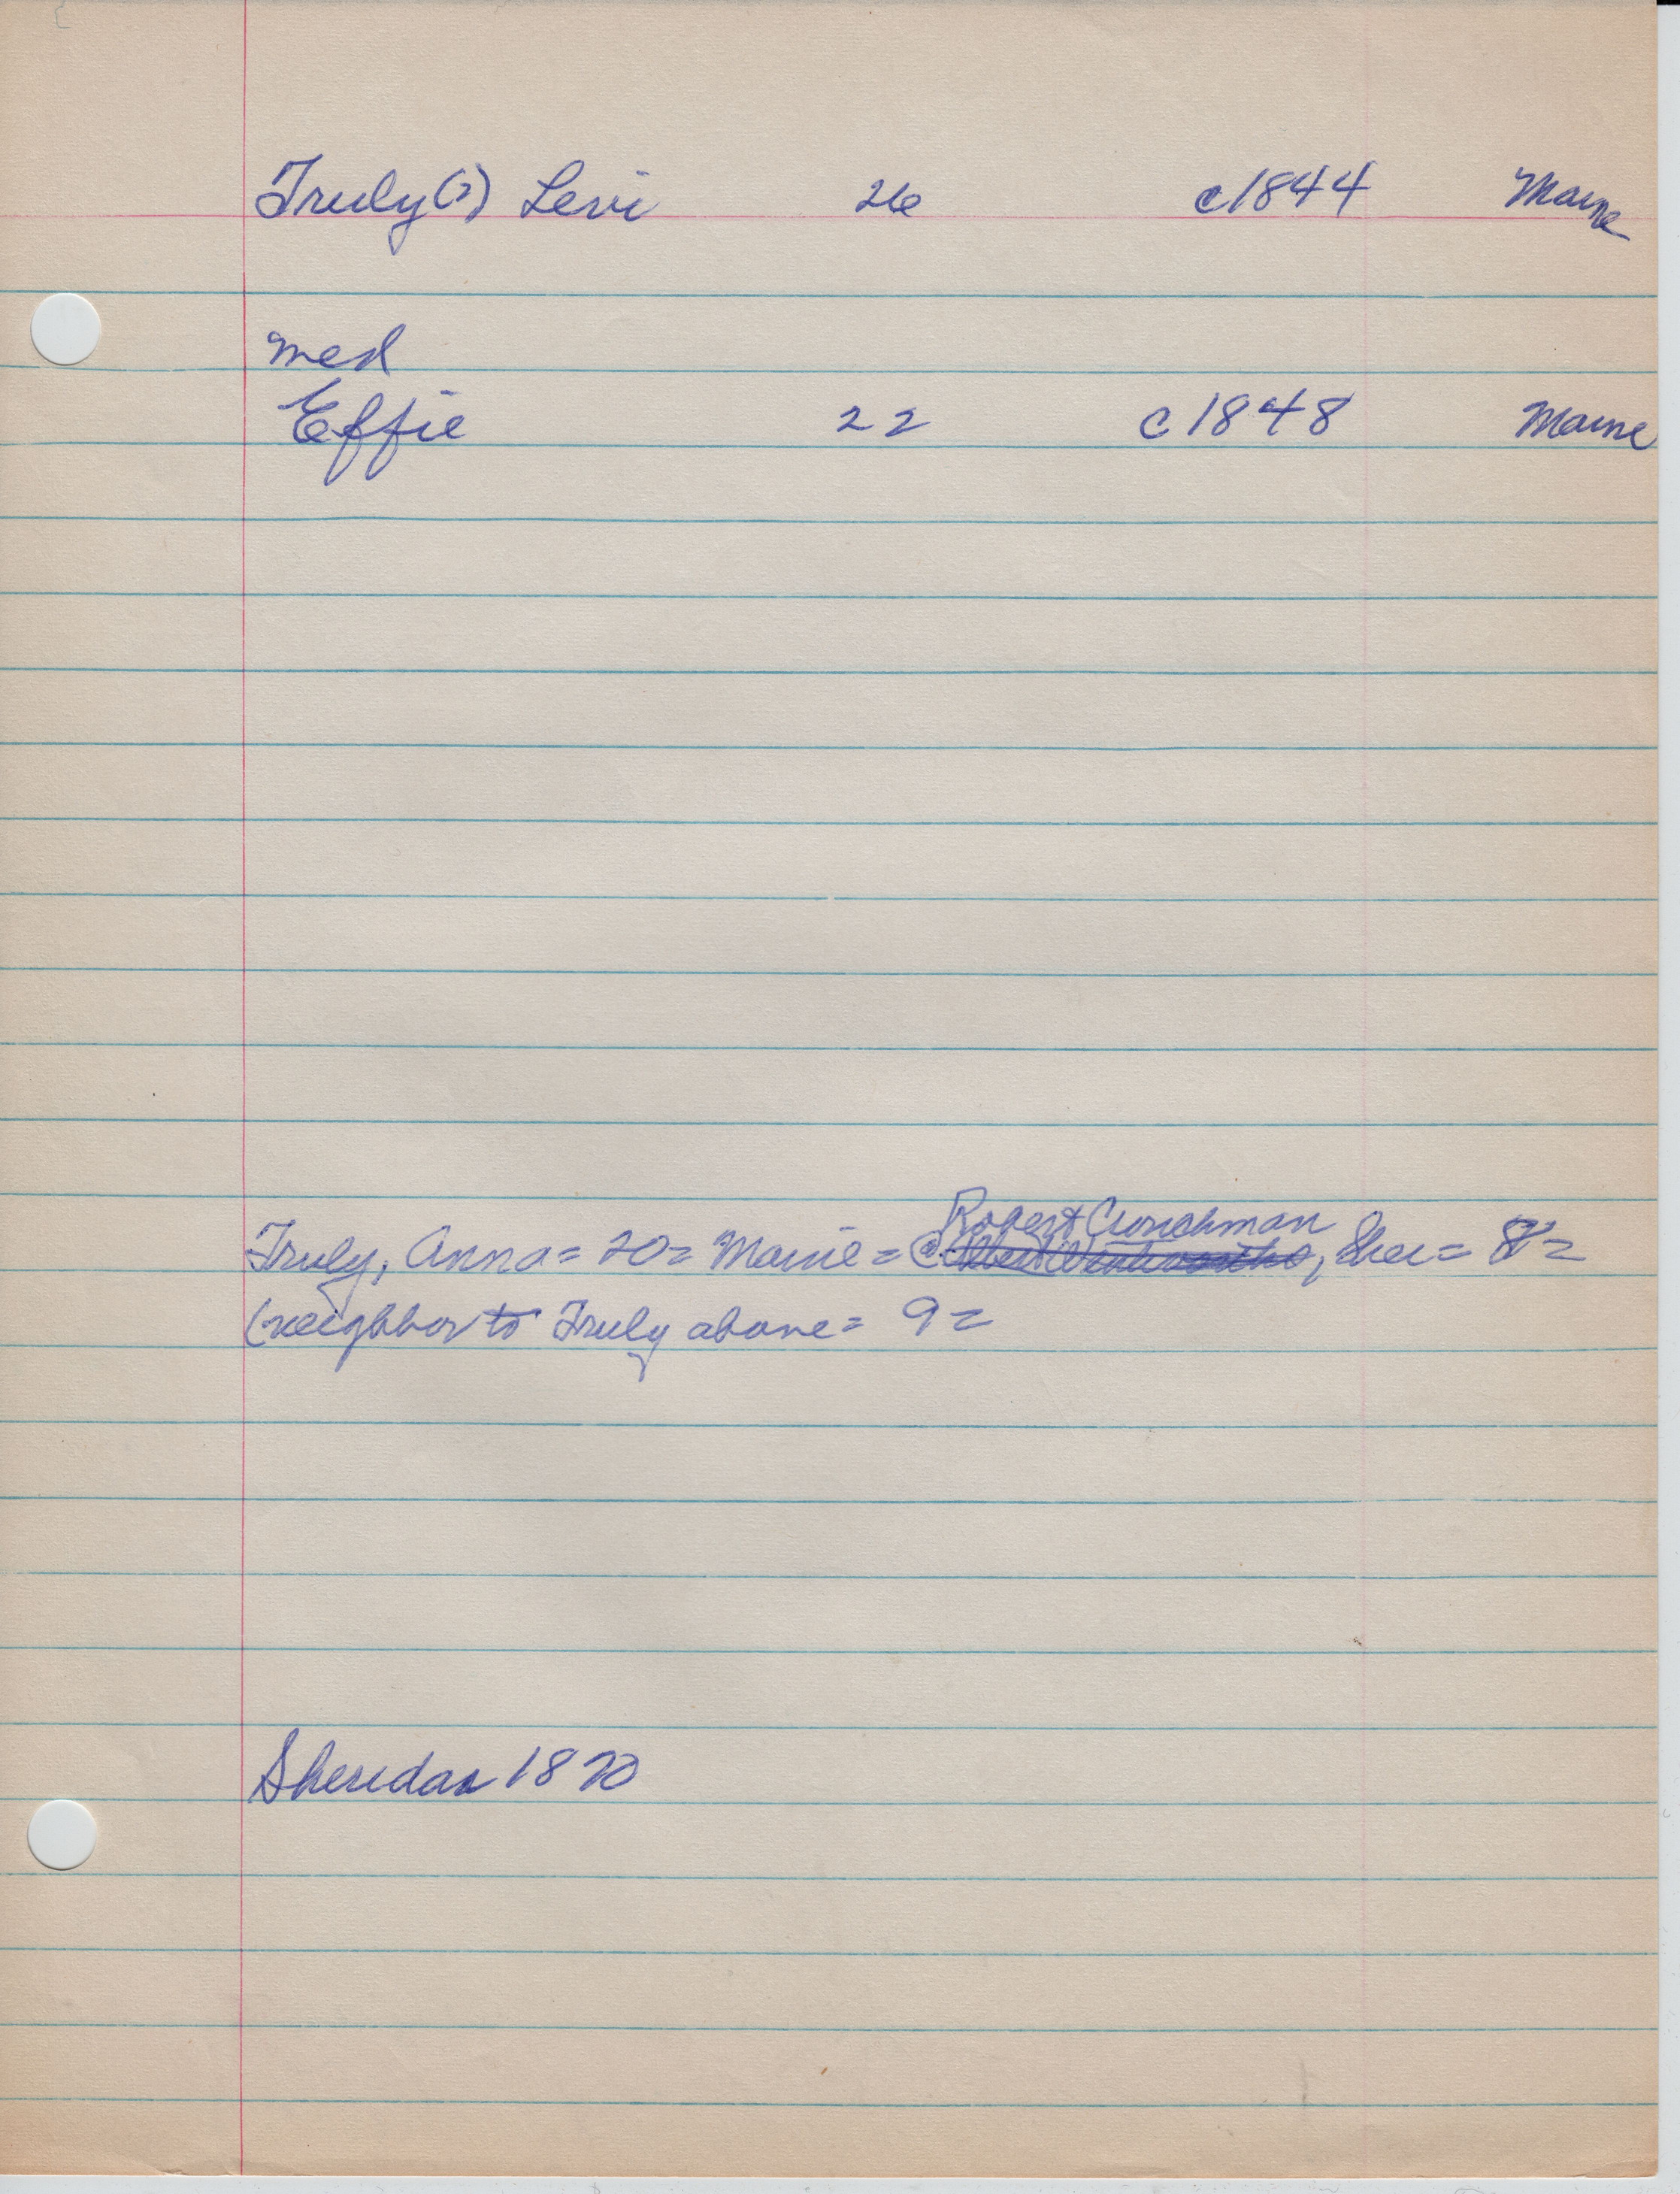 Truly(?) Levi 26 c1844 Maine
med
Effie 22 c1848 Maine
Robert
Truly, Anna = 20 = Maine = @ , Sher = 82
(neighbor to Truly above = 92
Sheridan 1870